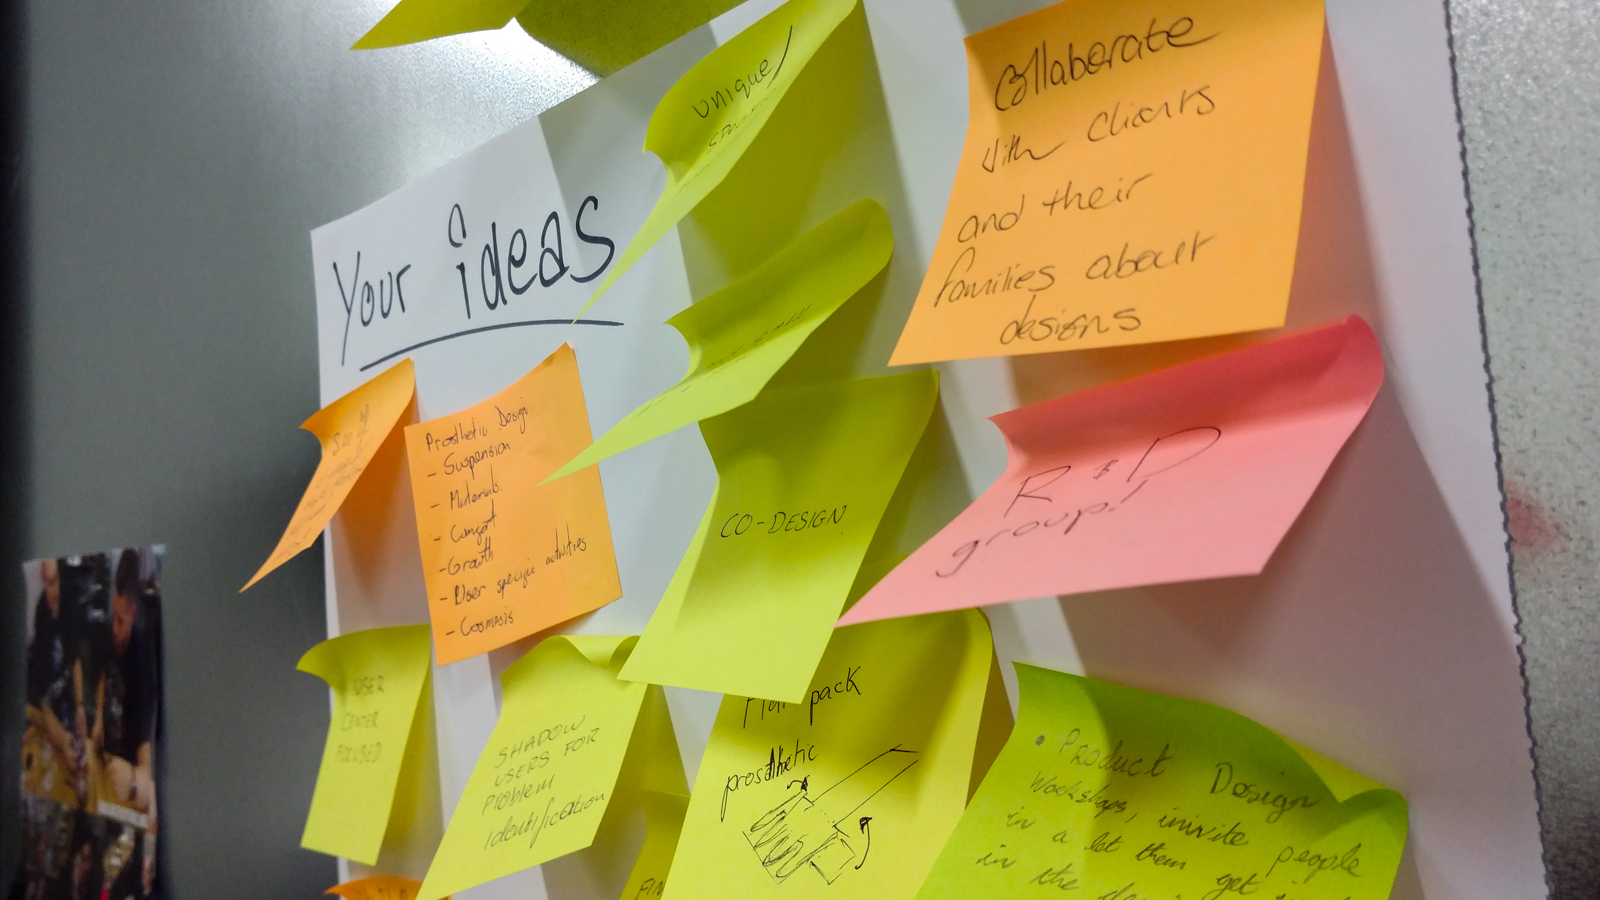 Your ideas
unique
Collaborate
With Clients
and their
families about
designs
Prosthetic Design
- Suspension
- Materials.
- Comfort
- Growth
- User specific activities
- Cosmesis
CO-DESIGN
R & D
group!
USER
CENTER
FOCUSED
SHADOW
USERS FOR
PROBlEM
identification
Flat pack
prosthetic
• PRODUCT Design
Workshops, inivite people
in a let them get
in the